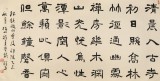 清晨入古寺
初日照高林
曲徑通幽處
禪房花木深
山光悅鳥性
潭影空人心
萬籟此俱寂
但餘鐘磬音